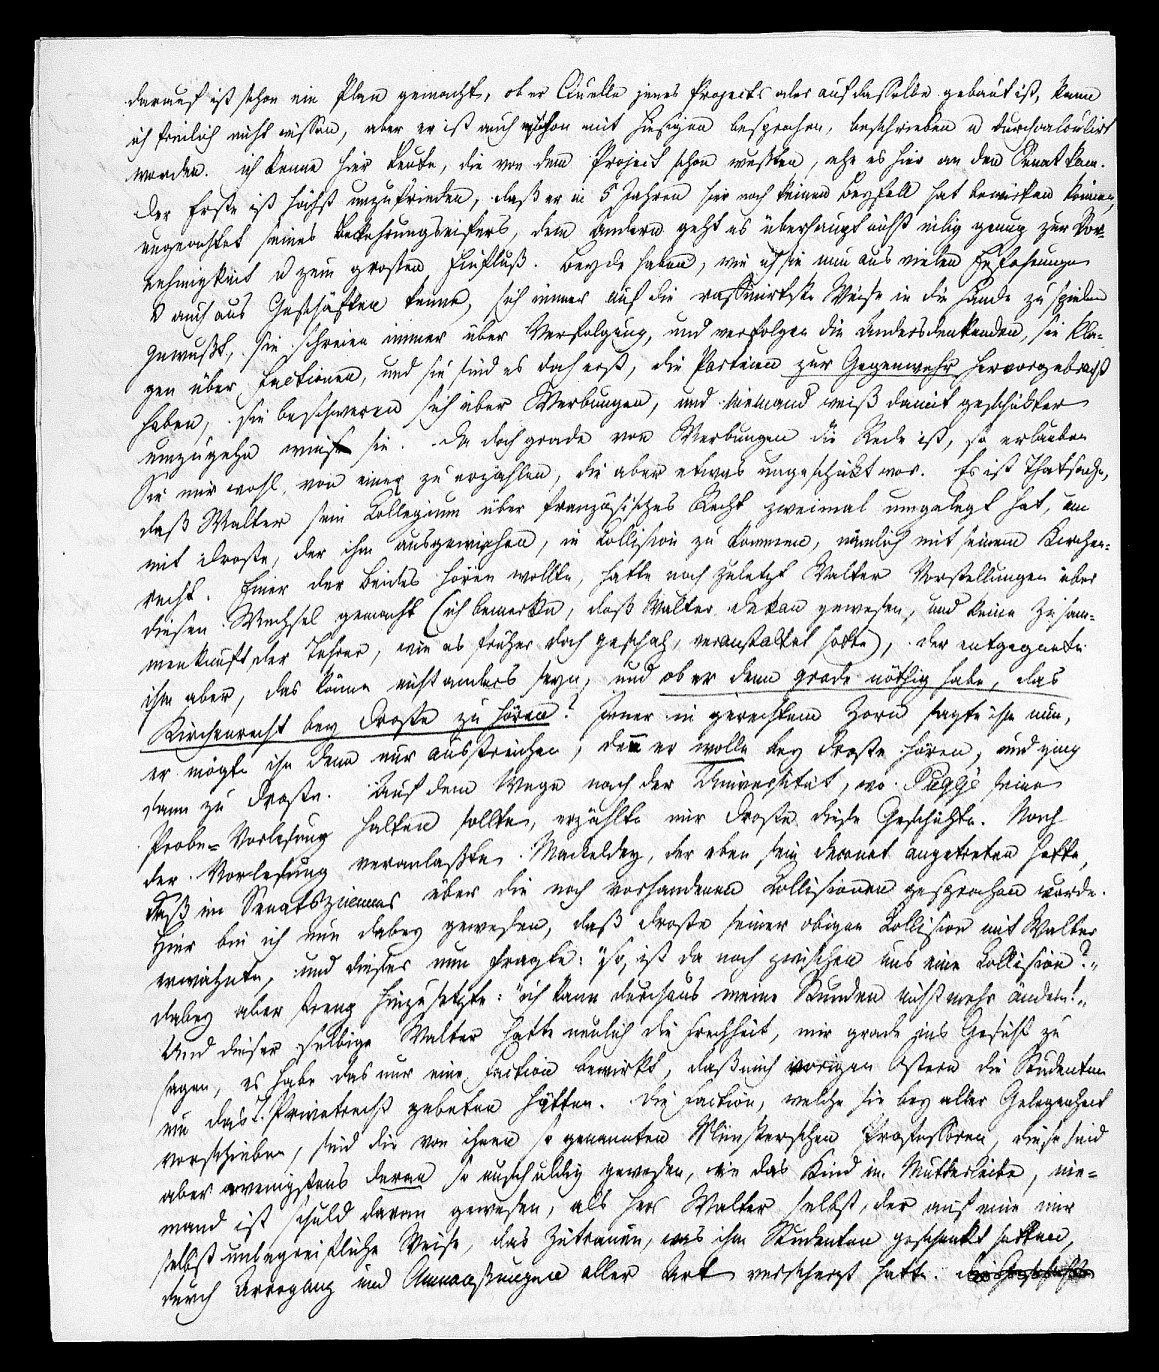 darauf ist schon ein Plan gemacht, ob er Quelle jenes Projects oder auf dasselbe gebaut ist, kann
ich freilich nicht wissen, aber er ist auch schon mit Hiesigen besprochen, beschrieben u durchcalculirt
worden. ich kenne hier Leute, die von dem Project schon wußten, ehe es hier an den Senat kam.
Der Erste ist höchst unzufrieden, daß er in 5 Jahren hier noch keinen Beyfall hat bewirken können,
ungeachtet seines Bekehrungseifers, dem Andern geht es überhaupt nicht eilig genug zur Vor-
nehmigkeit u zum großen Einfluß. Beyde haben, wie ich sie nun aus vielen Erfahrungen
u auch aus Geschäften kenne, sich immer auf die raffinirteste Weise in die Hände zu spielen
gewußt, sie schreien immer über Verfolgung, und verfolgen die Andersdenkenden, sie kla-
gen über Factionen, und sie sind es doch erst, die Parteien zur Gegenwehr hervorgebracht
haben, sie beschweren sich über Werbungen, und niemand weiß damit geschickter
umzugehn wie sie. Da doch grade von Werbungen die Rede ist, so erlauben
Sie mir wohl, von einer zu erzählen, die aber etwas ungeschickt war. Es ist Thatsache,
daß Walter sein Collegium über französisches Recht zweimal umgelegt hat, um
mit Droste, der ihm ausgewichen, in Collision zu kommen, nämlich mit seinem Kirchen-
recht. Einer der beides hören wollte, hatte noch zuletzt Walter Vorstellungen über
diesen Wechsel gemacht (ich bemerke, daß Walter Dekan gewesen, und keine Zusam-
menkunft der Lehrer, wie es früher doch geschah, veranstaltet hatte), der entgegnete
ihm aber, das könne nicht anders seyn, und ob er denn grade nöthig habe, das
Kirchenrecht bey Droste zu hören? Jener in gerechtem Zorn sagte ihm nun,
er mögte ihn denn nur ausstreichen, denn er wolle bey Droste hören, und ging
dann zu Droste. Auf dem Wege nach der Universität, wo Puggé seine
Probe-Vorlesung halten sollte, erzählte mir Droste diese Geschichte. Nach
der Vorlesung veranlaßte Mackeldey, der eben sein Decanat angetreten hatte,
daß im Senatszimmer über die noch vorhandenen Collisionen gesprochen wurde.
Hier bin ich nun dabey gewesen, daß Droste seiner obigen Collision mit Walter
erwähnte, und dieser nun fragte: "So, ist da noch zwischen uns eine Collision?"
dabey aber streng hinzusetzte: "ich kann durchaus meine Stunden nicht mehr ändern!"
Und dieser selbige Walter hatte neulich die Frechheit, mir grade ins Gesicht zu
sagen, es habe das nur eine Faction bewirkt, daß mich vorigen Ostern die Studenten
um das Privatrecht gebeten hätten. Die Faction, welche sie bey aller Gelegenheit
vorschieben, sind die von ihnen so genannten Münsterschen Professoren, diese sind
aber wenigstens daran so unschuldig gewesen, wie das Kind im Mutterleibe, nie-
mand ist Schuld daran gewesen, als Herr Walter selbst, der auf eine mir
selbst unbegreifliche Weise, das Zutrauen, was ihm Studenten geschenkt hatten,
durch Arroganz und Anmaaßungen aller Art verscherzt hatte.